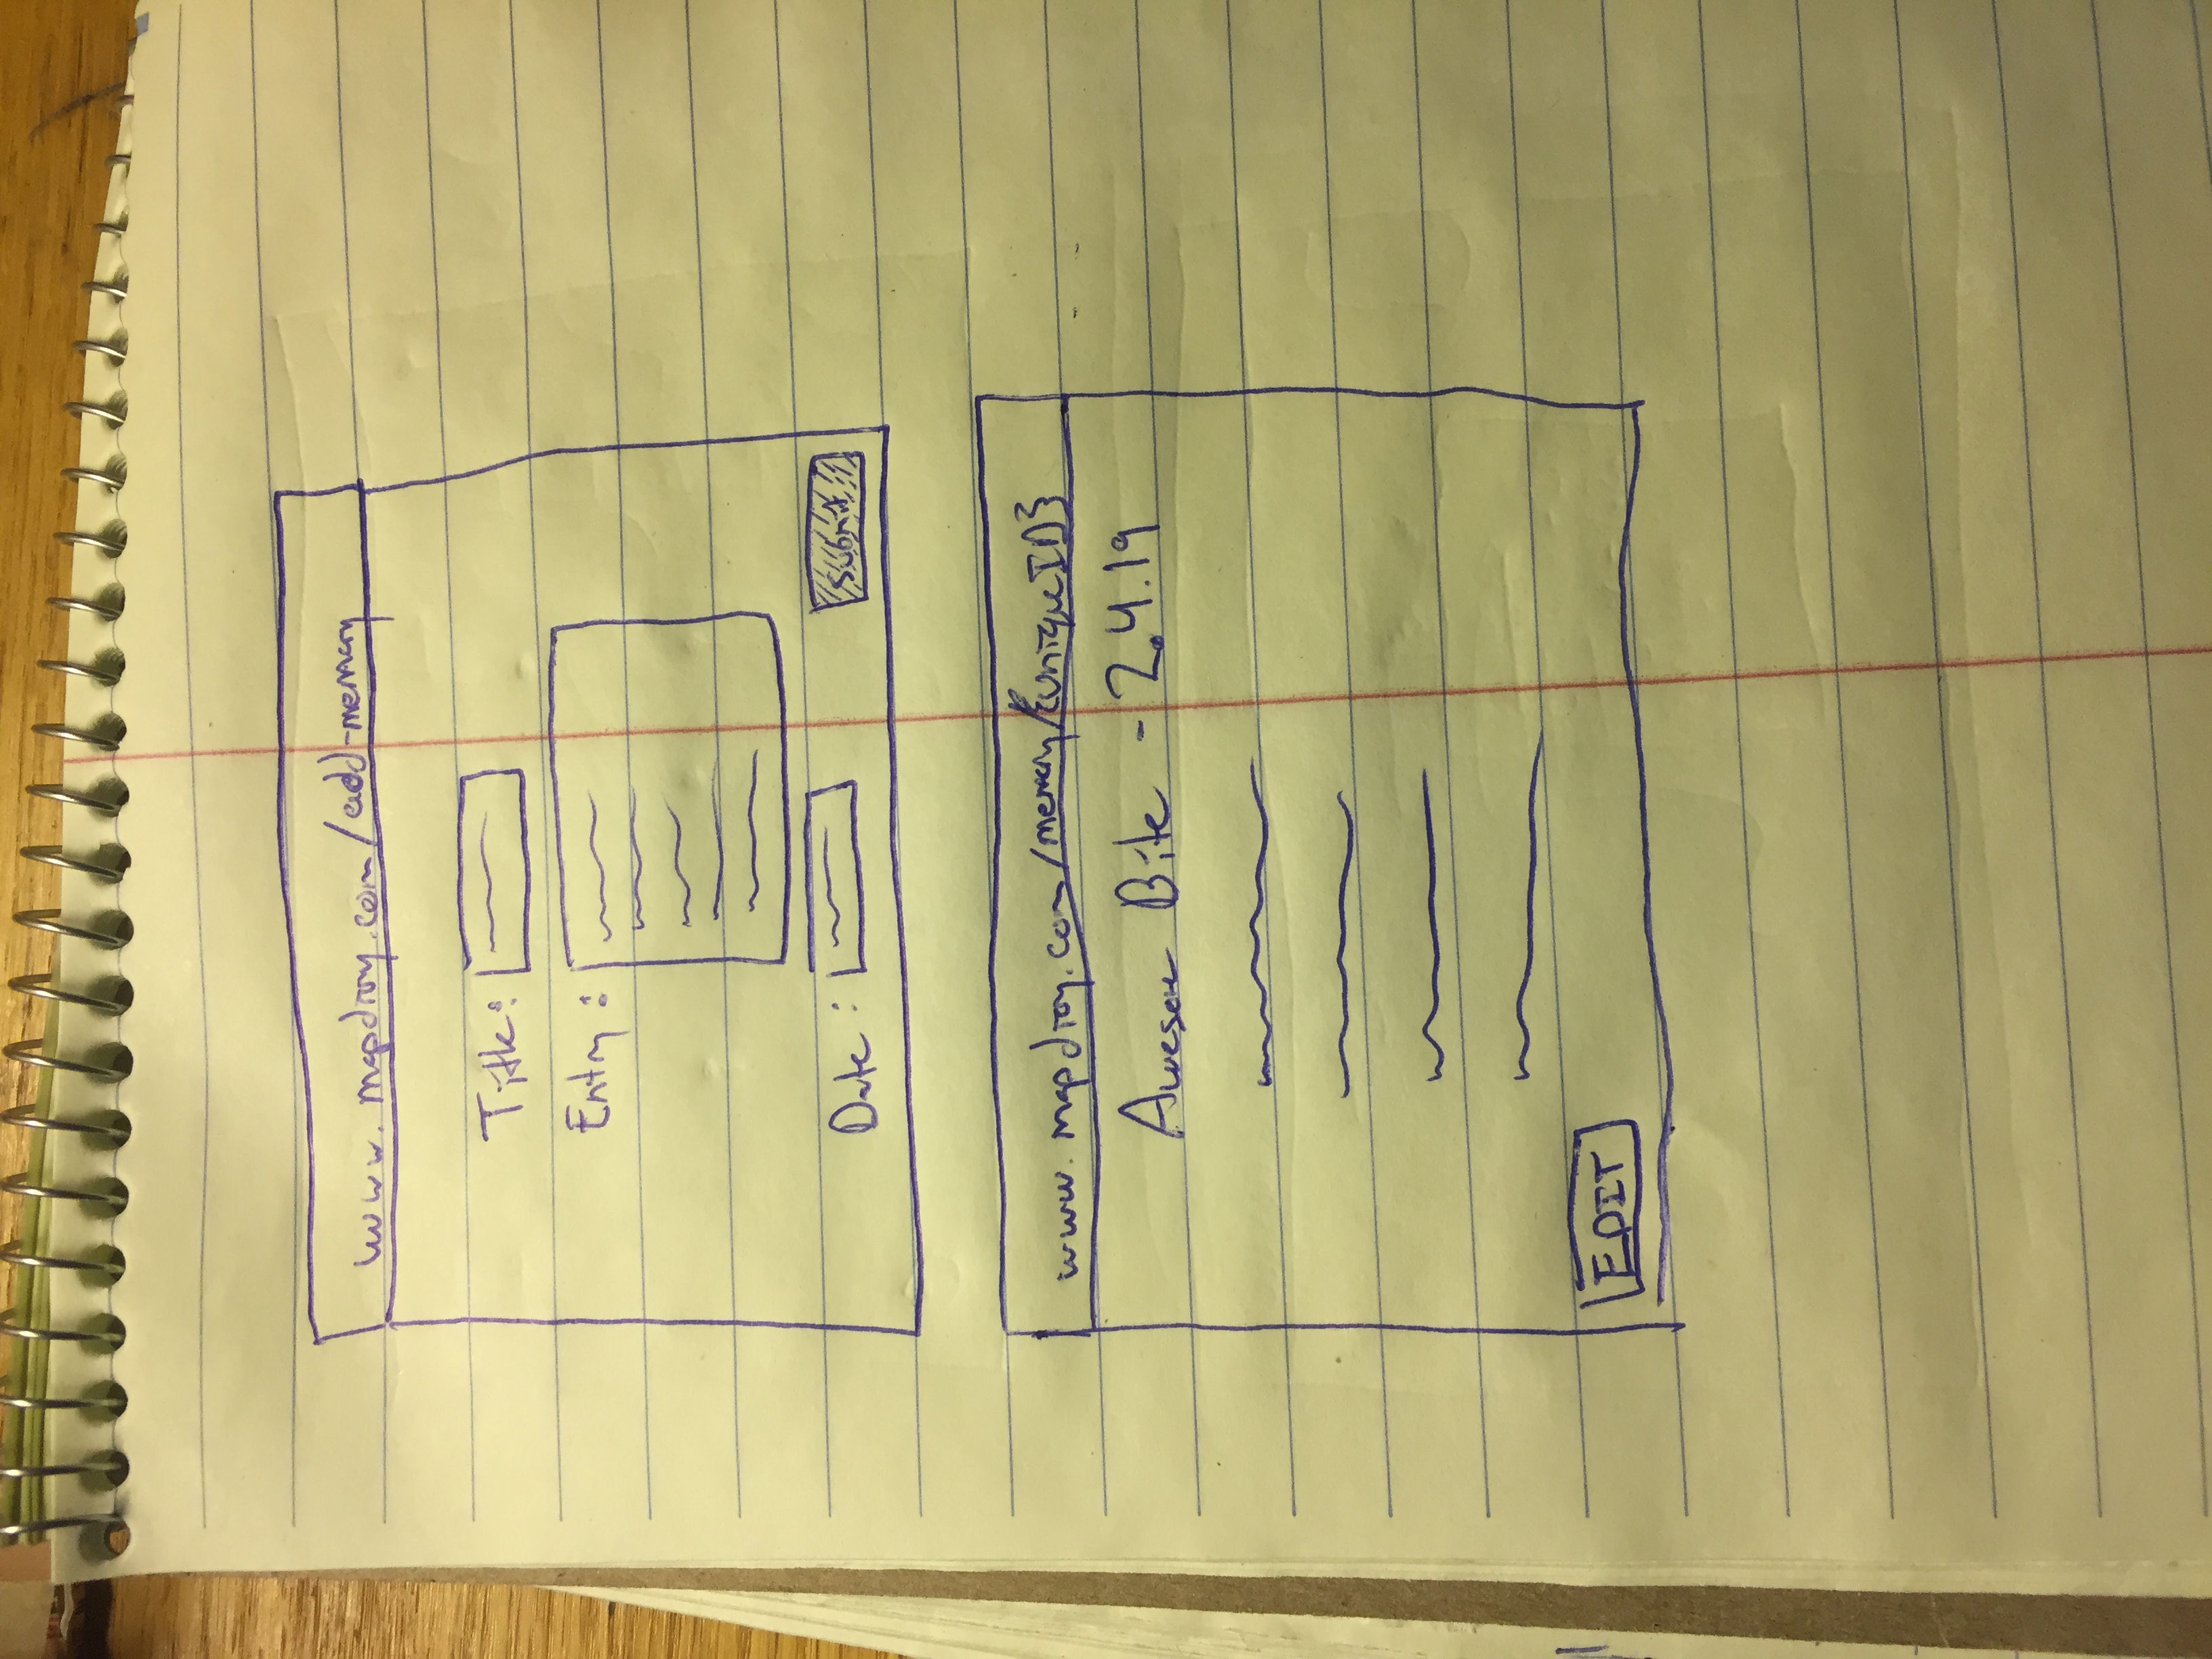 www.mapdiary.com/add-memory
Title:
Entry:
Date:
Submit
www.mapdiary.com/memory/{uniqueID}
Awesome Bite - 2.4.19
EDIT